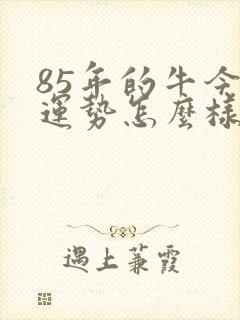 85年的牛今
運勢怎麼樣
遇上蒹霞